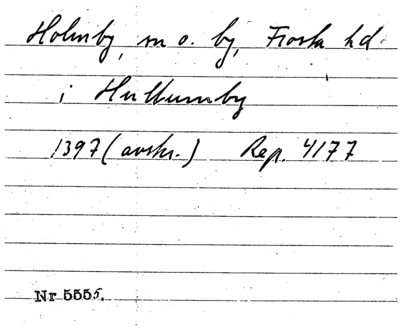 Holmby, m o. by, Frosta hd.
i Hullumby
1397 (avskr.) Rep. 4177
Nr 5555.